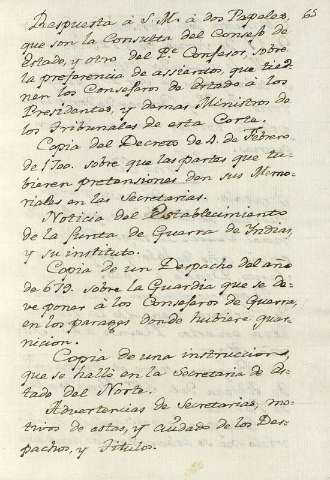 65
Respuesta â S. M. â dos Papeles,
que son la Consulta del Consejo de
Estado, y otro del Pe. Confesor, sobre
la preferencia de assientos, que tie-
nen los Consejeros de Estado â los
Presidentes, y demas Ministros de
los Tribunales de esta Corte.
Copia del Decreto de 4. de Febrero
de 1700. sobre que las partes que tu-
bieren pretensiones den sus Memo-
riales en las Secretarias.
Noticia del Establecimiento
de la Junta de Guerra de Yndias,
y su instituto.
Copia de un Despacho del año
de 679. sobre la Guardia que se de-
ve poner â los Consejeros de Guerra,
en los parages donde hubiere guar-
nicion.
Copia de una instruccion,
que se halló en la Secretaria de Es-
tado del Norte.
Advertencias de Secretarias, mo-
tivos de estas, y cuidado de los Des-
pachos, y Titulos.